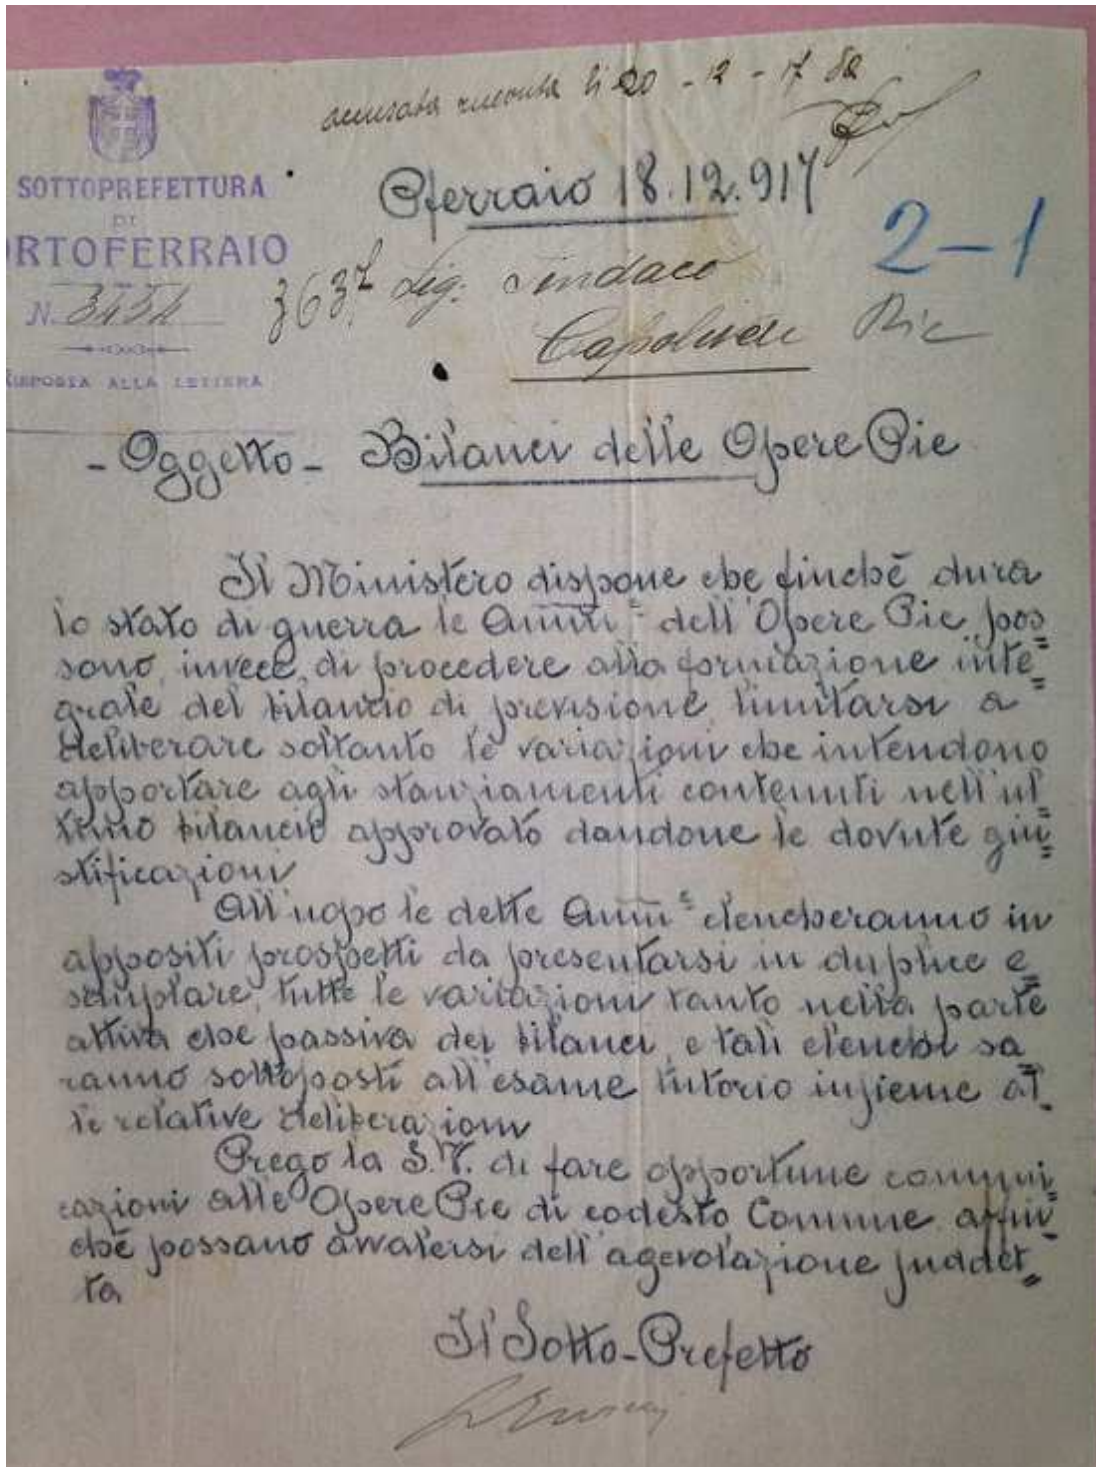 accusata ricevuta li 20 - 12 - 17
SOTTOPREFETTURA
DI
ORTOFERRAIO
N. 3434
RISPOSTA ALLA LETTERA
Pferraio 18.12.917
2-1
3637 Sig. Sindaco
Capoliveri Ric
- Oggetto - Bilanci delle Opere Pie
Il Ministero dispone che finchè dura
lo stato di guerra le Amm.ni dell'Opere Pie pos=
sono, invece, di procedere alla formazione inte=
grale del bilancio di previsione, limitarsi a
deliberare soltanto le variazioni che intendono
apportare agli stanziamenti contenuti nell'ul=
timo bilancio approvato dandone le dovute giu=
stificazioni
All'uopo le dette Amm.ni elencheranno in
appositi prospetti da presentarsi in duplice e=
semplare, tutte le variazioni tanto nella parte
attiva che passiva dei bilanci, e tali elenchi sa=
ranno sottoposti all'esame tutorio insieme al=
le relative deliberazioni
Prego la S.V. di fare opportune comuni=
cazioni alle Opere Pie di codesto Comune affin=
chè possano avvalersi dell'agevolazione suddet=
ta
Il Sotto-Prefetto